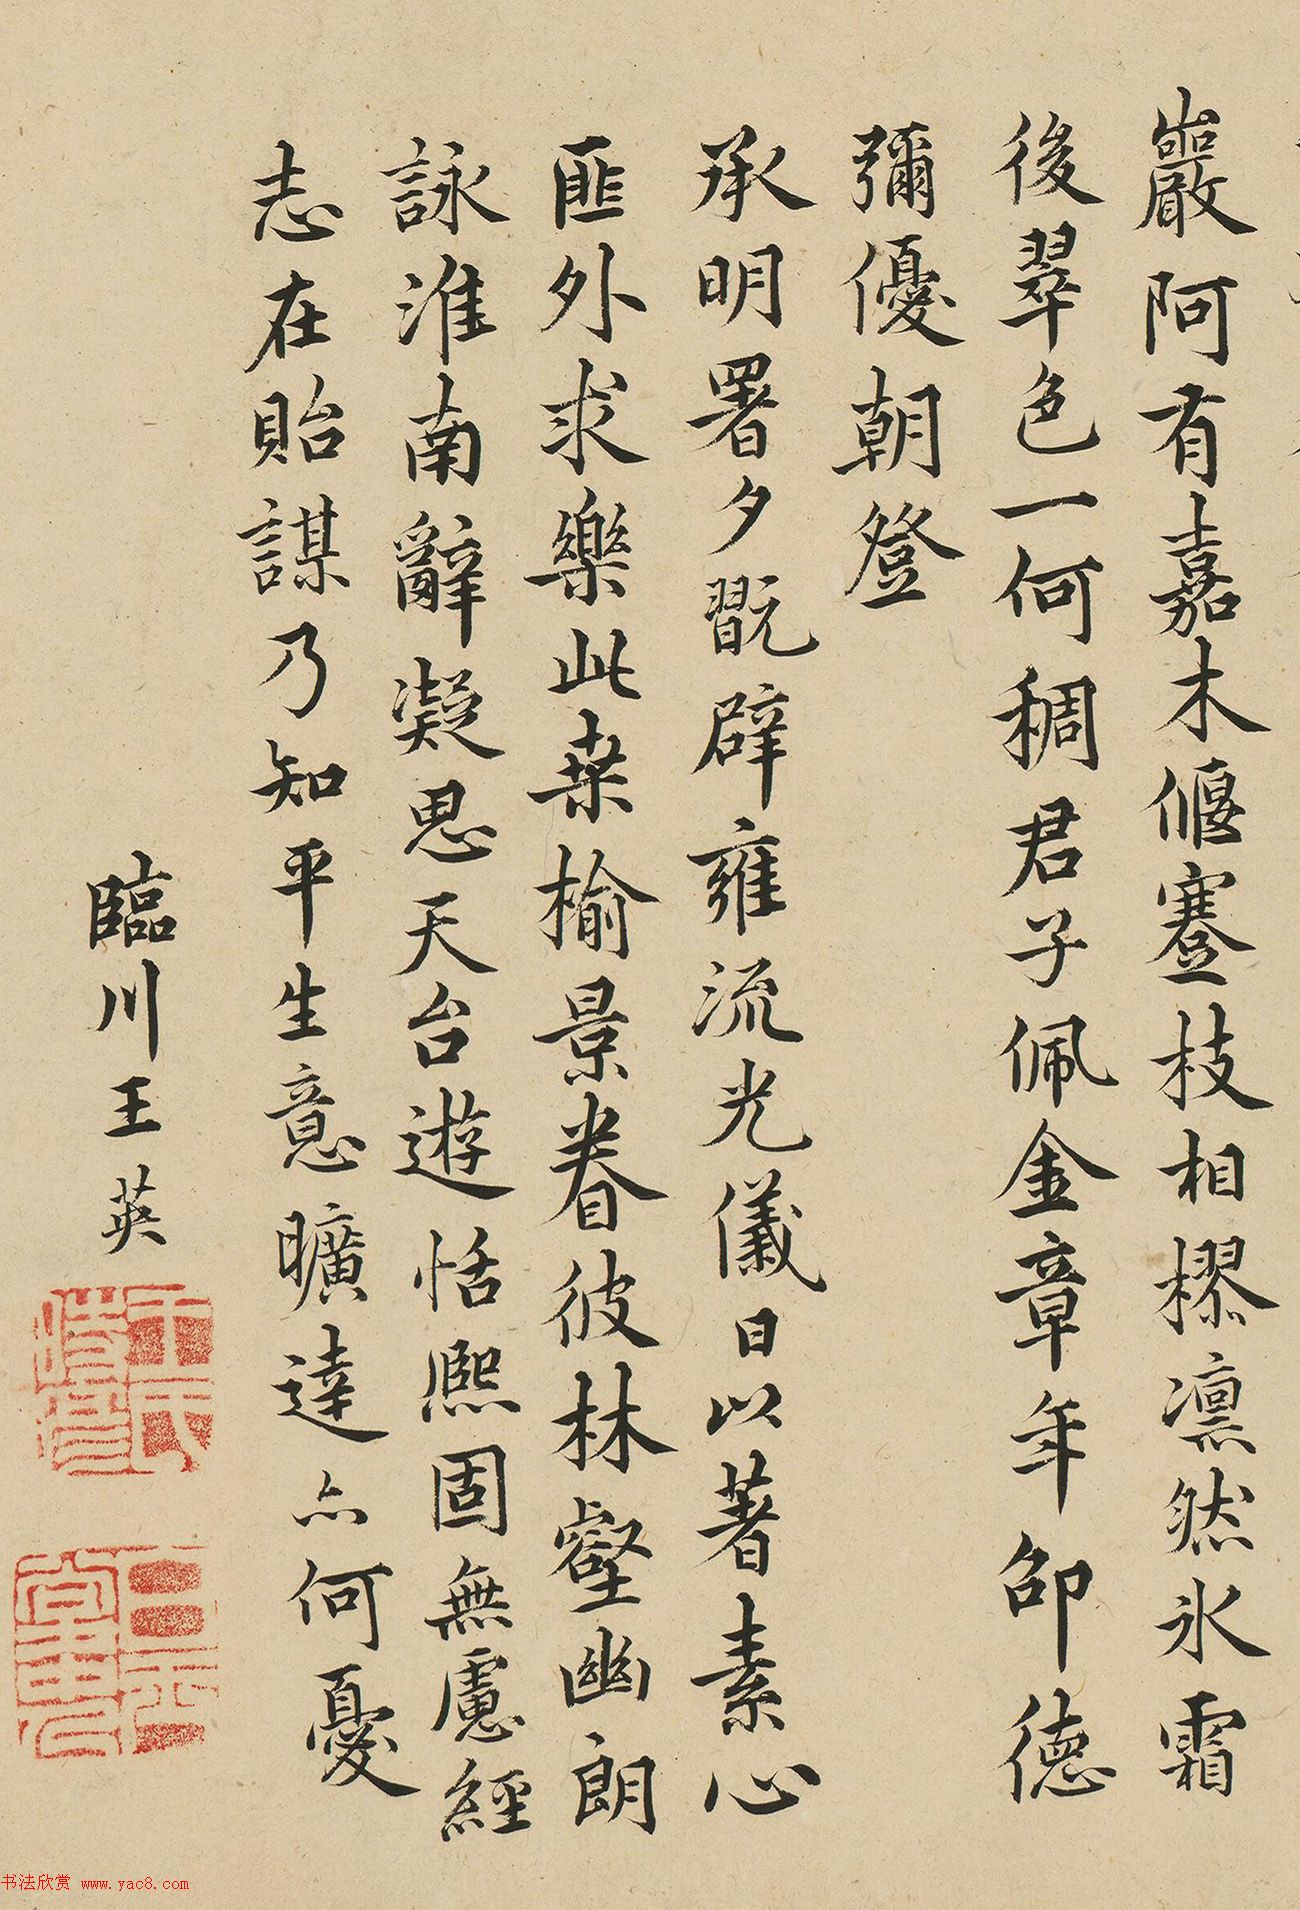 巖阿有嘉木偃蹇枝相樛凛然氷霜
後翠色一何稠君子佩金章年卲德
彌優朝登
承明署夕翫辟雍流光儀日以著素心
匪外求樂此桒榆景眷彼林壑幽朗
詠淮南辭凝思天台遊恬熈固無慮經
志在貽謀乃知平生意曠達亦何憂
臨川王英
王氏
書法欣赏 www.yac8.com